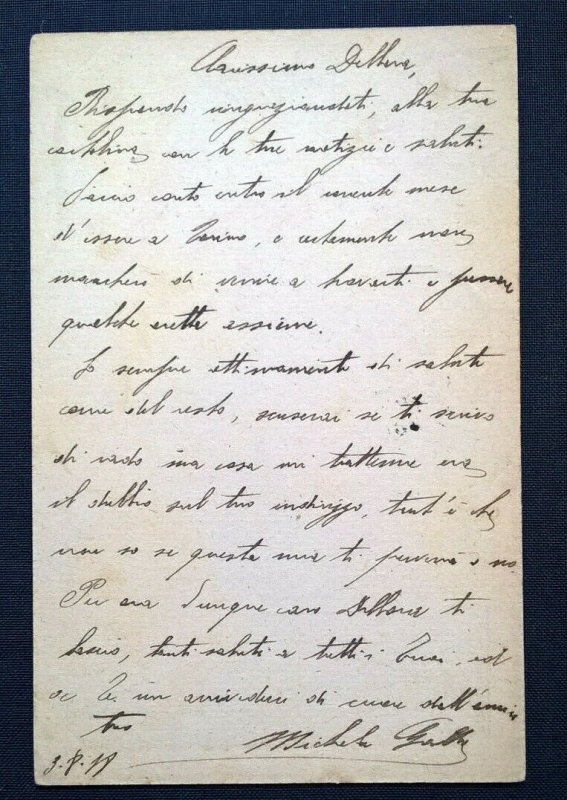 Carissimo Dellera,
Rispondo ringraziandoti, alla tua
cartolina con le tue notizie e saluti.
Faccio conto entro il corrente mese
d'essere a Torino, e certamente non
mancherò di venire a trovarti e passare
qualche oretta assieme.
Io sempre ottimamente di salute
come del resto, scuserai se ti scrivo
di rado ma cosa mi trattenne era
il dubbio sul tuo indirizzo, tant'è che
non so se questa mia ti perverrà o no.
Per ora dunque caro Dellera ti
lascio, tanti saluti a tutti i tuoi, ed
a Te un arrivederci di cuore dall'amico
tuo
Michele
3.8.18